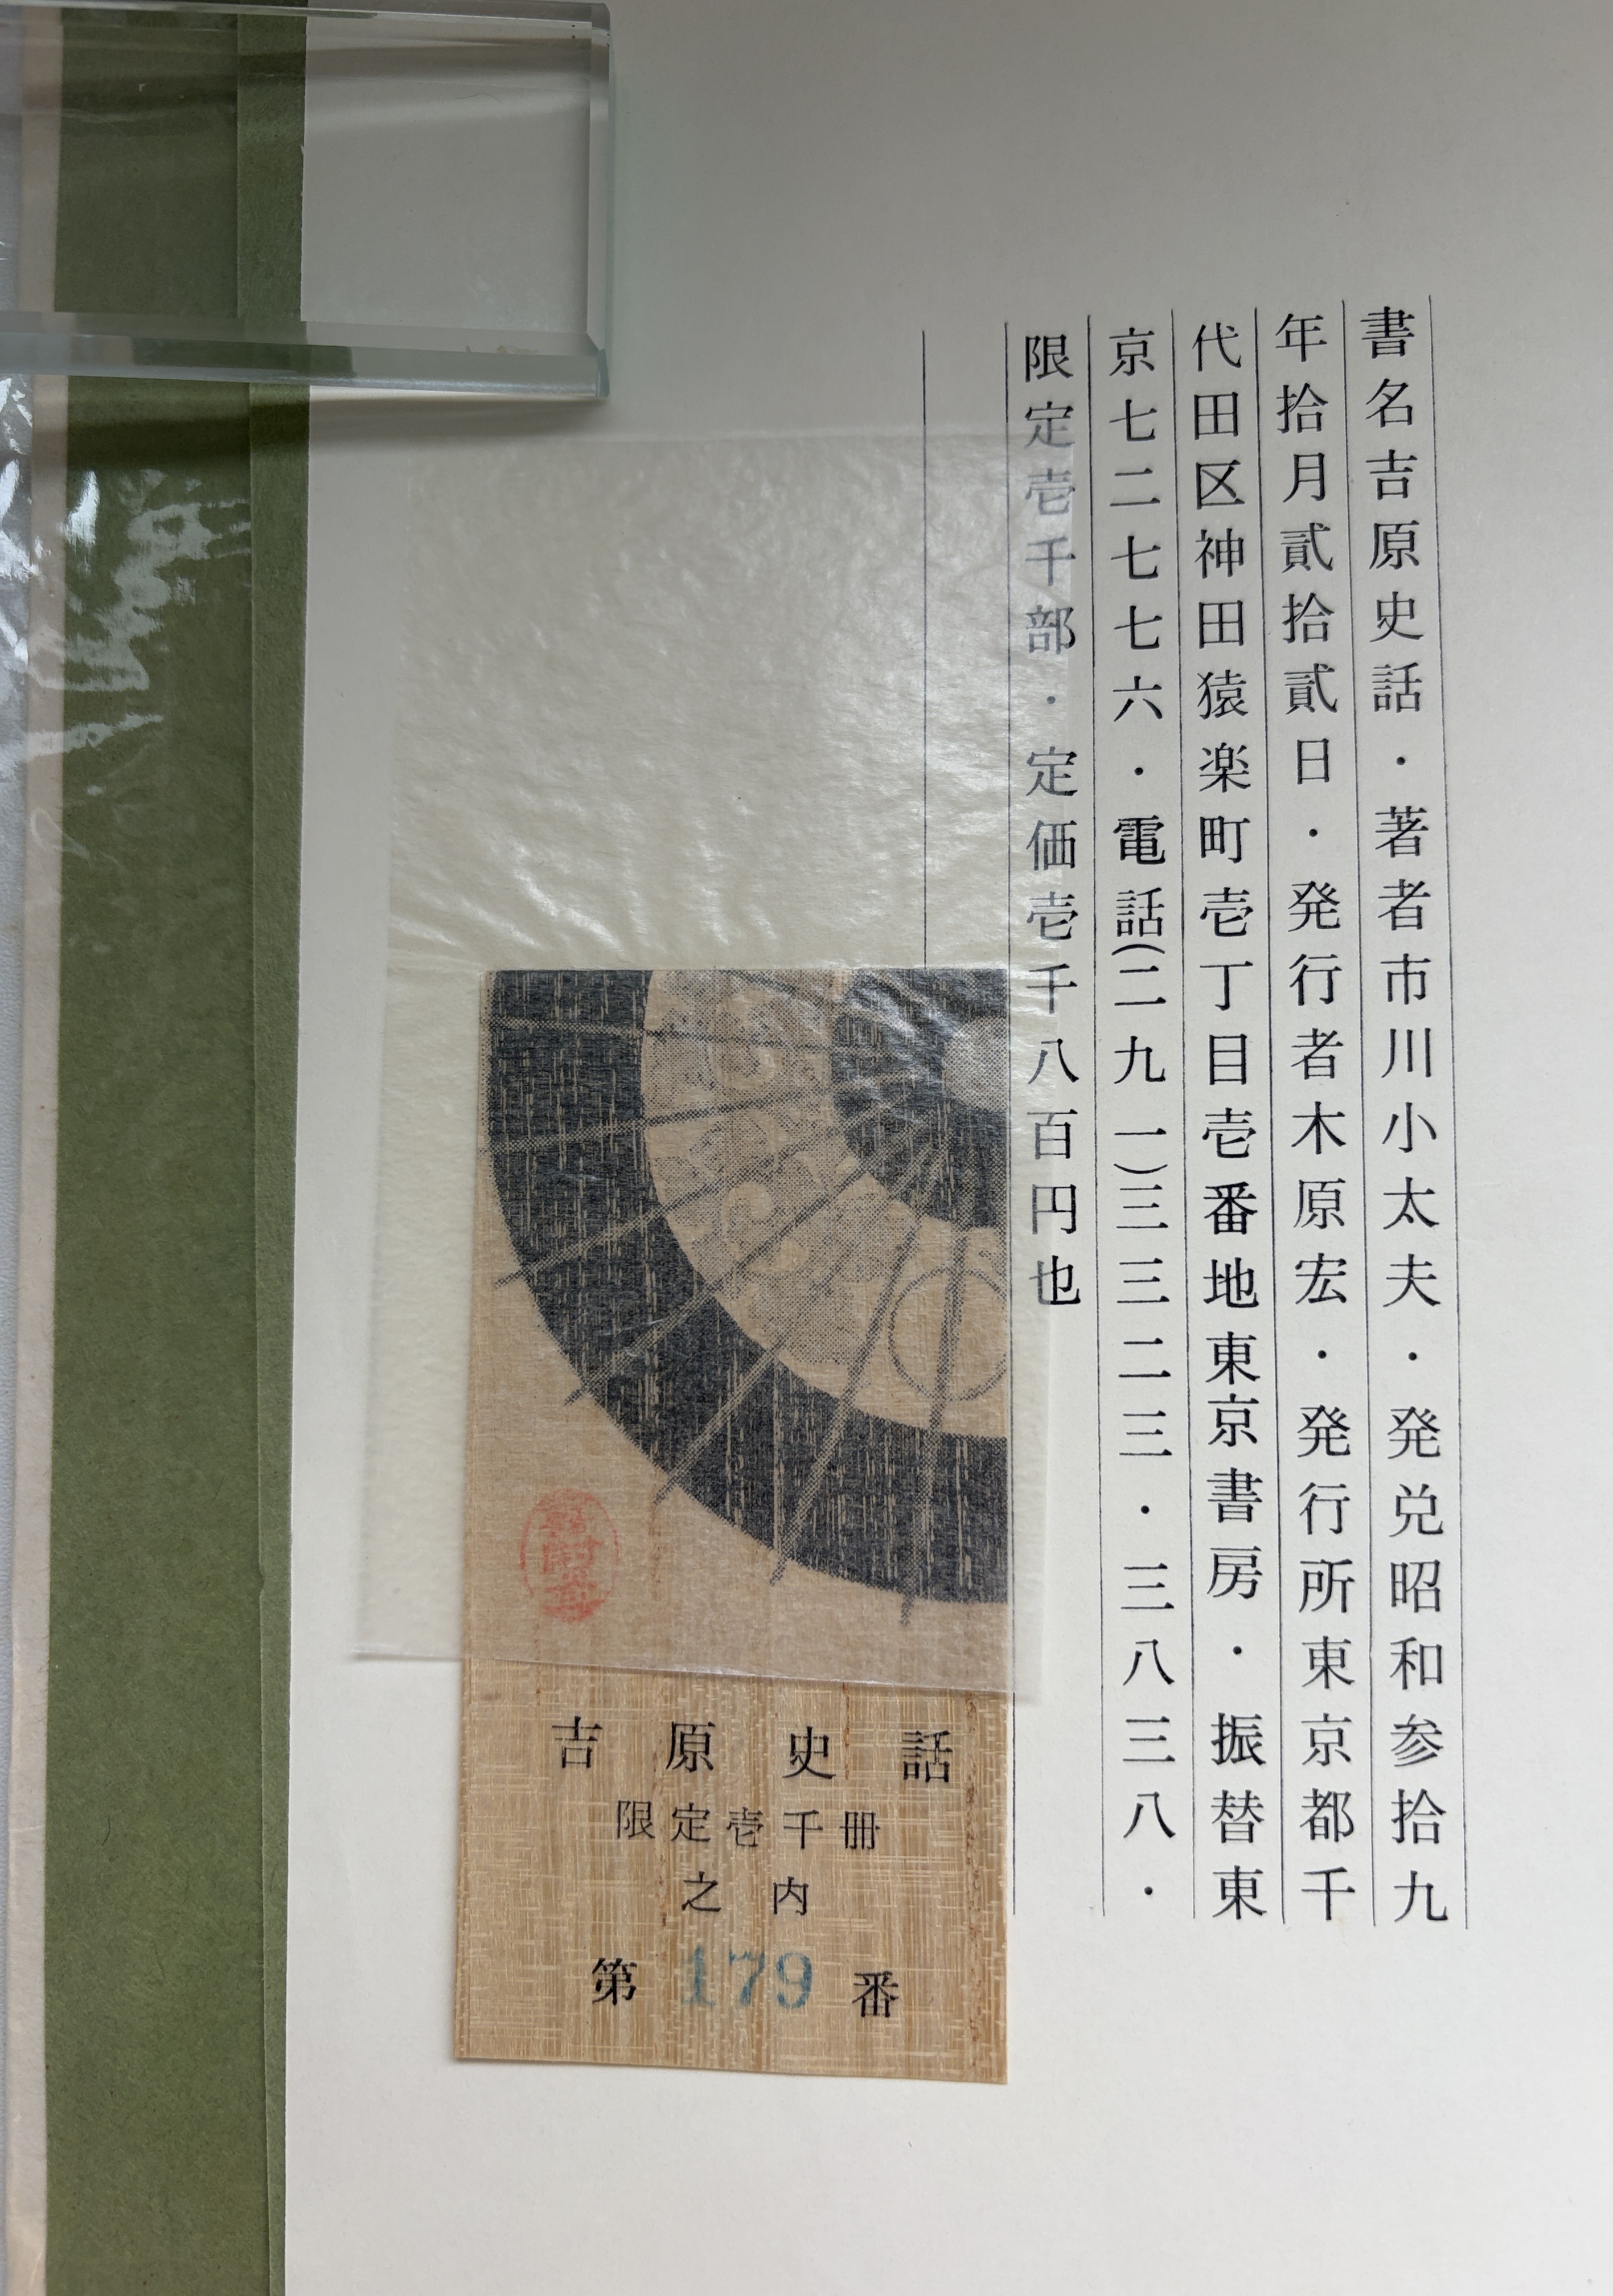 書名吉原史話・著者市川小太夫・発兌昭和参拾九
年拾月貳拾貳日・発行者木原宏・発行所東京都千
代田区神田猿楽町壱丁目壱番地東京書房・振替東
京七二七七六・電話(二九一)三三二三・三八三八・
限定壱千部・定価壱千八百円也
吉原史話
限定壱千冊
之内
第179番